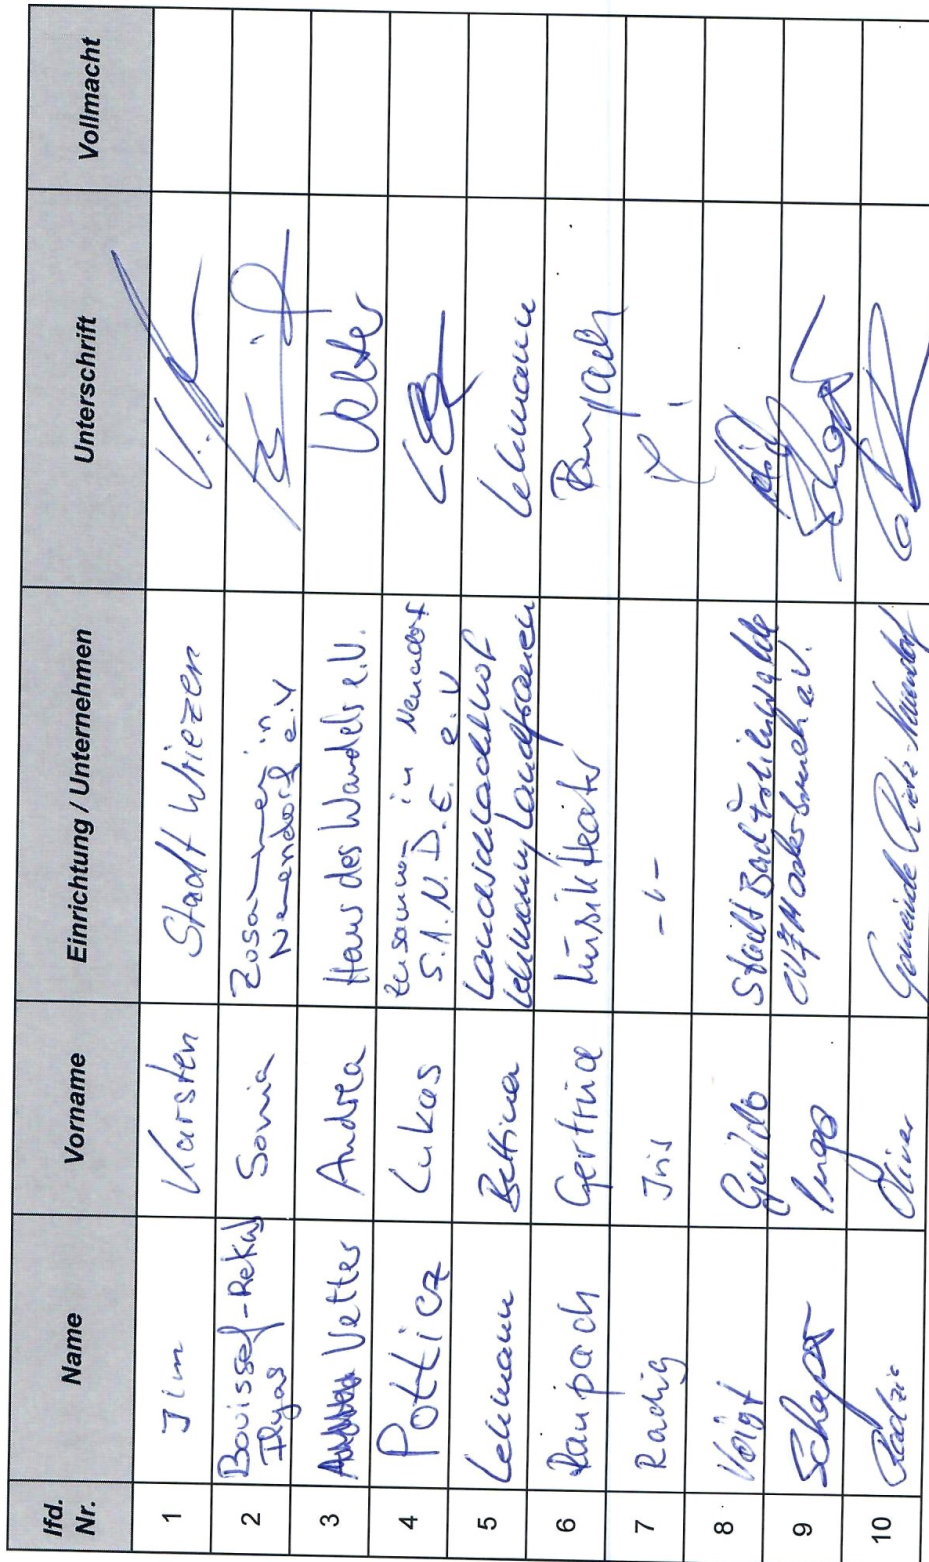 lfd. Nr. Name Vorname Einrichtung / Unternehmen Unterschrift Vollmacht
1 Ilm Karsten Stadt Wriezen
2 Bouissef-Rekab Ilyas Sonia Zusammen in Neuendorf e.V
3 Vetter Andrea Haus des Wandels e.V. Vetter
4 Potticz Lukas Zusammen in Neuendorf S.A.N.D.E. e.V
5 Lehmann Bettina Lehmann
6 Raupach Gertrud Musiktheater Raupach
7 Radig Iris -"-
8 Voigt Guido Stadt Bad Freienwalde
9 Schaper Ingo CVJM Oderbruch e.V.
10 Radzio Oliver Gemeinde